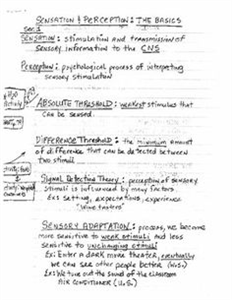 SENSATION & PERCEPTION: THE BASICS
SENSATION: stimulation and transmission of
sensory information to the CNS
Perception: psychological process of interpreting
sensory stimulation
ABSOLUTE THRESHOLD: weakest stimulus that
can be sensed.
DIFFERENCE Threshold: the minimum amount
of difference that can be detected between
two stimuli
Signal Detection Theory: perception of sensory
stimuli is influenced by many factors
Ex: setting, expectations, experience
SENSORY ADAPTATION: process, we become
more sensitive to weak stimuli and less
sensitive to unchanging stimuli
Ex: Enter a dark movie theater, eventually
we can see other people better (W.S.)
Ex: We tune out the sound of the classroom
AIR CONDITIONER (U.S.)